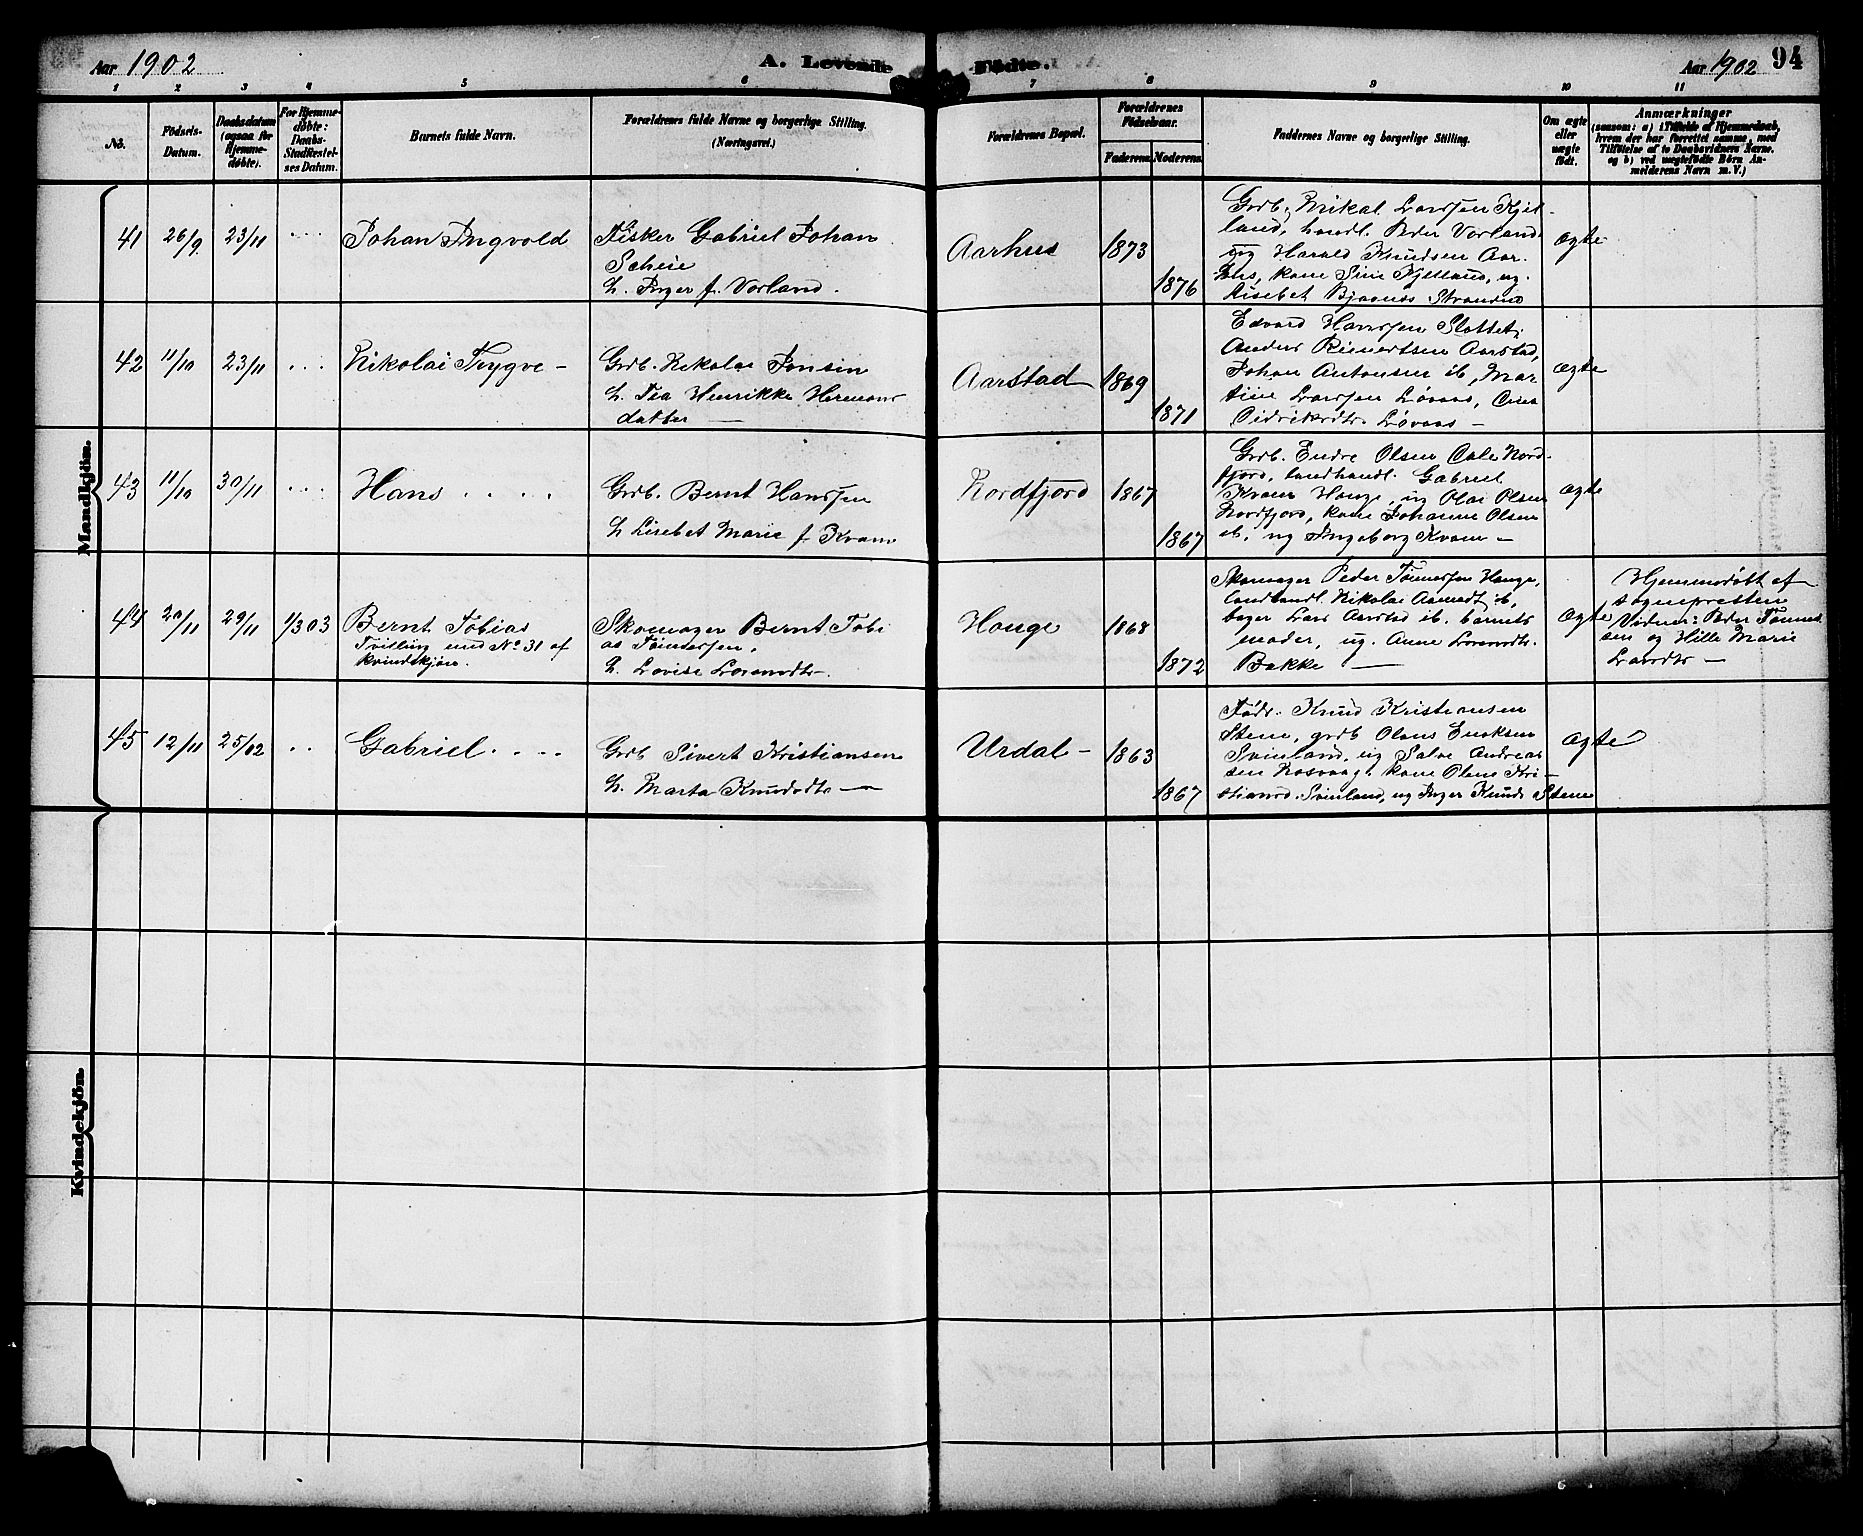 Aar 1902
A. Levende Fødte.
Aar 1902
94
1 2 3 4 5 6 7 8 9 10 11
No.
Fødsels-
Datum.
Daabsdatum
(ogsaa for
Hjemme-
døbte).
For Hjemme-
døbte:
Daabs-
Stadfestel-
ses Datum.
Barnets fulde Navn.
Forældrenes fulde Navne og borgerlige Stilling.
(Næringsvei.)
Forældrenes Bopæl.
Forældrenes
Fødselsaar.
Faderens.
Moderens.
Faddernes Navne og borgerlige Stilling.
Om ægte
eller
uægte
født.
Anmærkninger
(saasom: a) i Tilfælde af Hjemmedaab,
hvem der har forrettet samme, med
Tilføielse af to Daabsvidners Navne,
og b) ved uægtefødte Børn An-
melderens Navn m. V.)
Mandkjøn.
41
26/9
23/11
Johan Ingvold
Fisker Gabriel Johan
Scheie
h. Inger f. Vorland.
Aarhus
1873
1876
Grdb. Mikal Larssen Kjel-
land, handl. Peder Vorland
ug Harald Knudsen Aar-
hus, kone Sine Kjelland, ug.
Lisebet Bjaanes Strand
ægte
42
11/10
23/11
Nikolai Trygve -
Grdb. Nikolai Jensen
h. Tea Henrikke Hermans
datter
Aarstad
1869
1871
Edvard Hanssen Slottet,
Anders Reinertsen Aarstad,
Johan Antonsen ib, Mar
tine Larssen Løvaas,
Didriksdtr. Løvaas -
ægte
43
11/10
30/11
Hans
Grdb. Bernt Hanssen
h Lisebet Marie f Kvam
Nordfjord
1867
1867
Grdb. Endre Olsen Nord-
fjord, landhandl. Gabriel
Kvam Hauge, ug Olai Olsen
Nordfjord, kone Johanne Olsen
ib, ug Ingeborg Kvam -
ægte
44
20/11
29/11
1/3 03
Bernt Tobias
Tvilling med No 31 af
kvindekjøn.
Skomager Bernt Tobi
as Tønnessen,
h. Lovise Lorensdtr.
Hauge
1868
1872
Skomager Peder Tønnessen Hauge,
landhandl. Nikolai Aamodt ib,
bager Lars Aarstad ib. barnets
moder, ug. Anne Lorensdtr.
Bakke
ægte
Hjemmedøbt af
sognepresten
Vidner: Peder Tønnes
sen og Hille Marie
Larsdtr -
45
12/11
25/02
Gabriel
Grdb Sivert Kristiansen
h. Marta Knudsdtr
Urdal -
1863
1867
Fødr. Knud Kristiansen
Stene, grdb Olaus Eriksen
Svinland, ug Salve Andreas
sen Rosvaag, kone Olene Kri-
stiansd. Svinland, ug Inger Knuds Stene
ægte
Kvindekjøn.